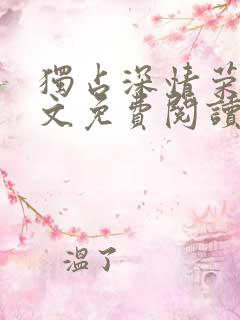 獨占深情
文免費閱讀
溫了